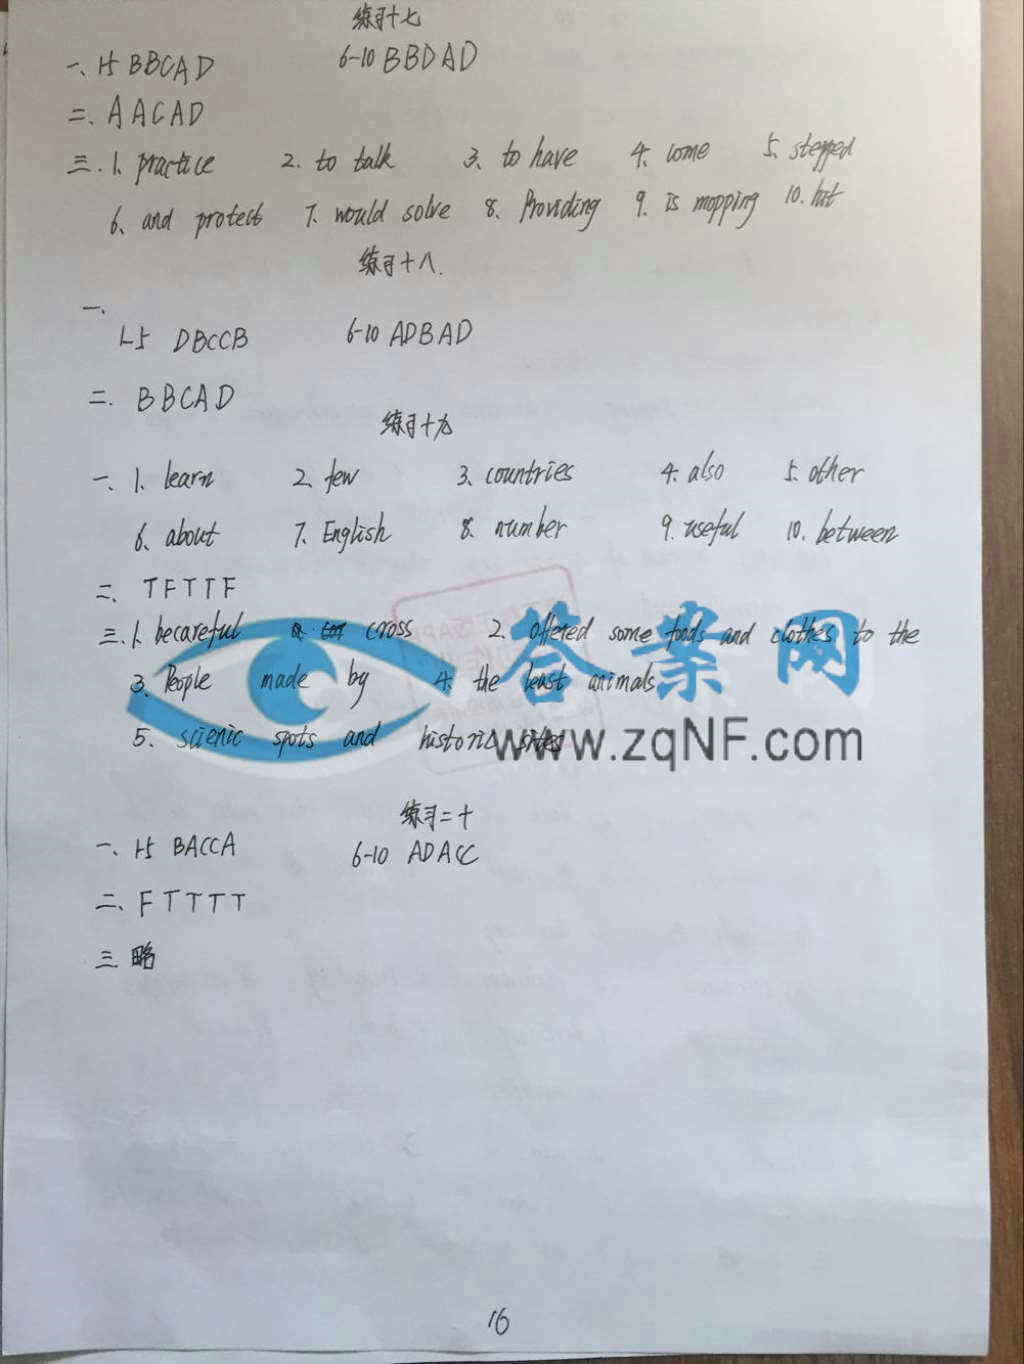 练习十七
一、1-5 BBCAD 6-10 BBDAD
二. AACAD
三. 1. practice 2. to talk 3. to have 4. come 5. stepped
6. and protect 7. would solve 8. Providing 9. is mopping 10. hit
练习十八.
一.
1-5 DBCCB 6-10 ADBAD
二. BBCAD
练习十九
一. 1. learn 2. few 3. countries 4. also 5. other
6. about 7. English 8. number 9. useful 10. between
二、 TFTTF
三. 1. becareful cross 2. offered some foods and clothes to the
3. People made by 4. the least animals
5. scienic spots and historic sites
答案网
www.zqNF.com
练习二十
一、1-5 BACCA 6-10 ADACC
二、FTTTT
三 略
16